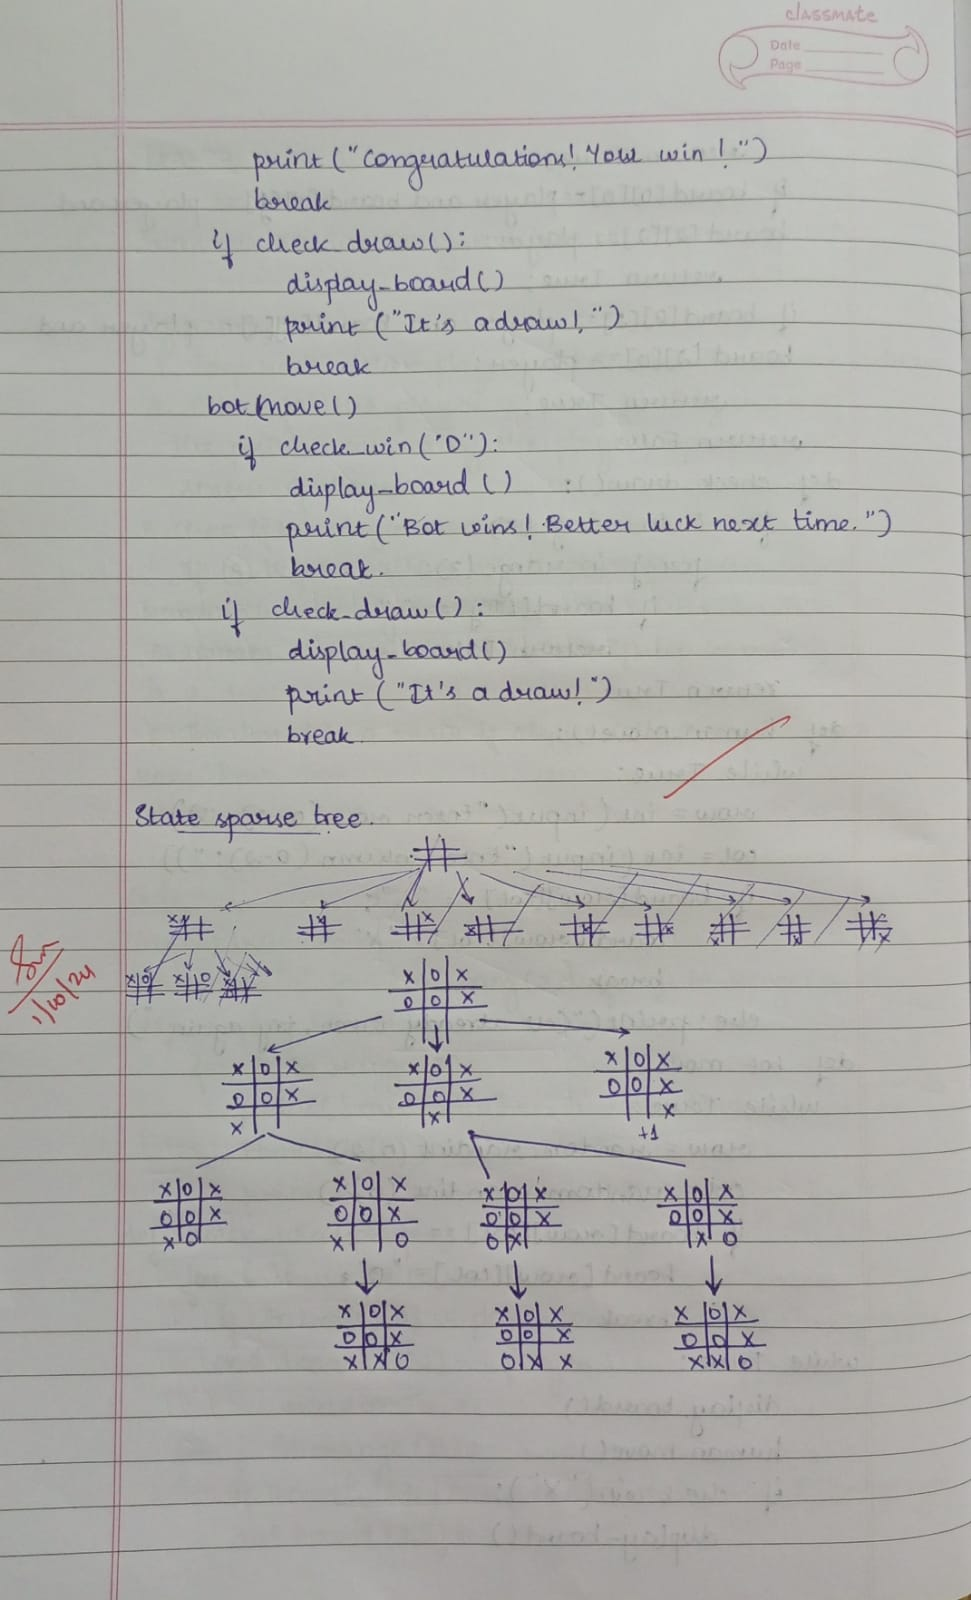 classmate
Date
Page
print ("Congratulations! You win !")
break
if check_draw():
display_board()
print ("It's a draw!")
break
bot move()
if check_win("O"):
display_board ()
print("Bot wins! Better luck next time.")
break.
if check_draw():
display_board()
print ("It's a draw!")
break
State sparse tree.
1/10/24
X O X
O O X
X O X X O X X O X
O O X O O X O O X
X X X
+1
X O X X O X X O X X O X
O O X O O X O O X O O X
X O X O O X X O
X O X X O X X O X
O O X O O X O O X
X X O O X X X X O